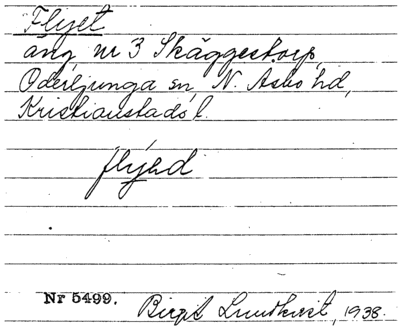 Flyet
äng nr 3 Skäggestorp,
Oderljunga sn, N. Åsbo hd,
Kristianstads l.
flýed
Nr 5499.
Birgit Lundkvist, 1938.